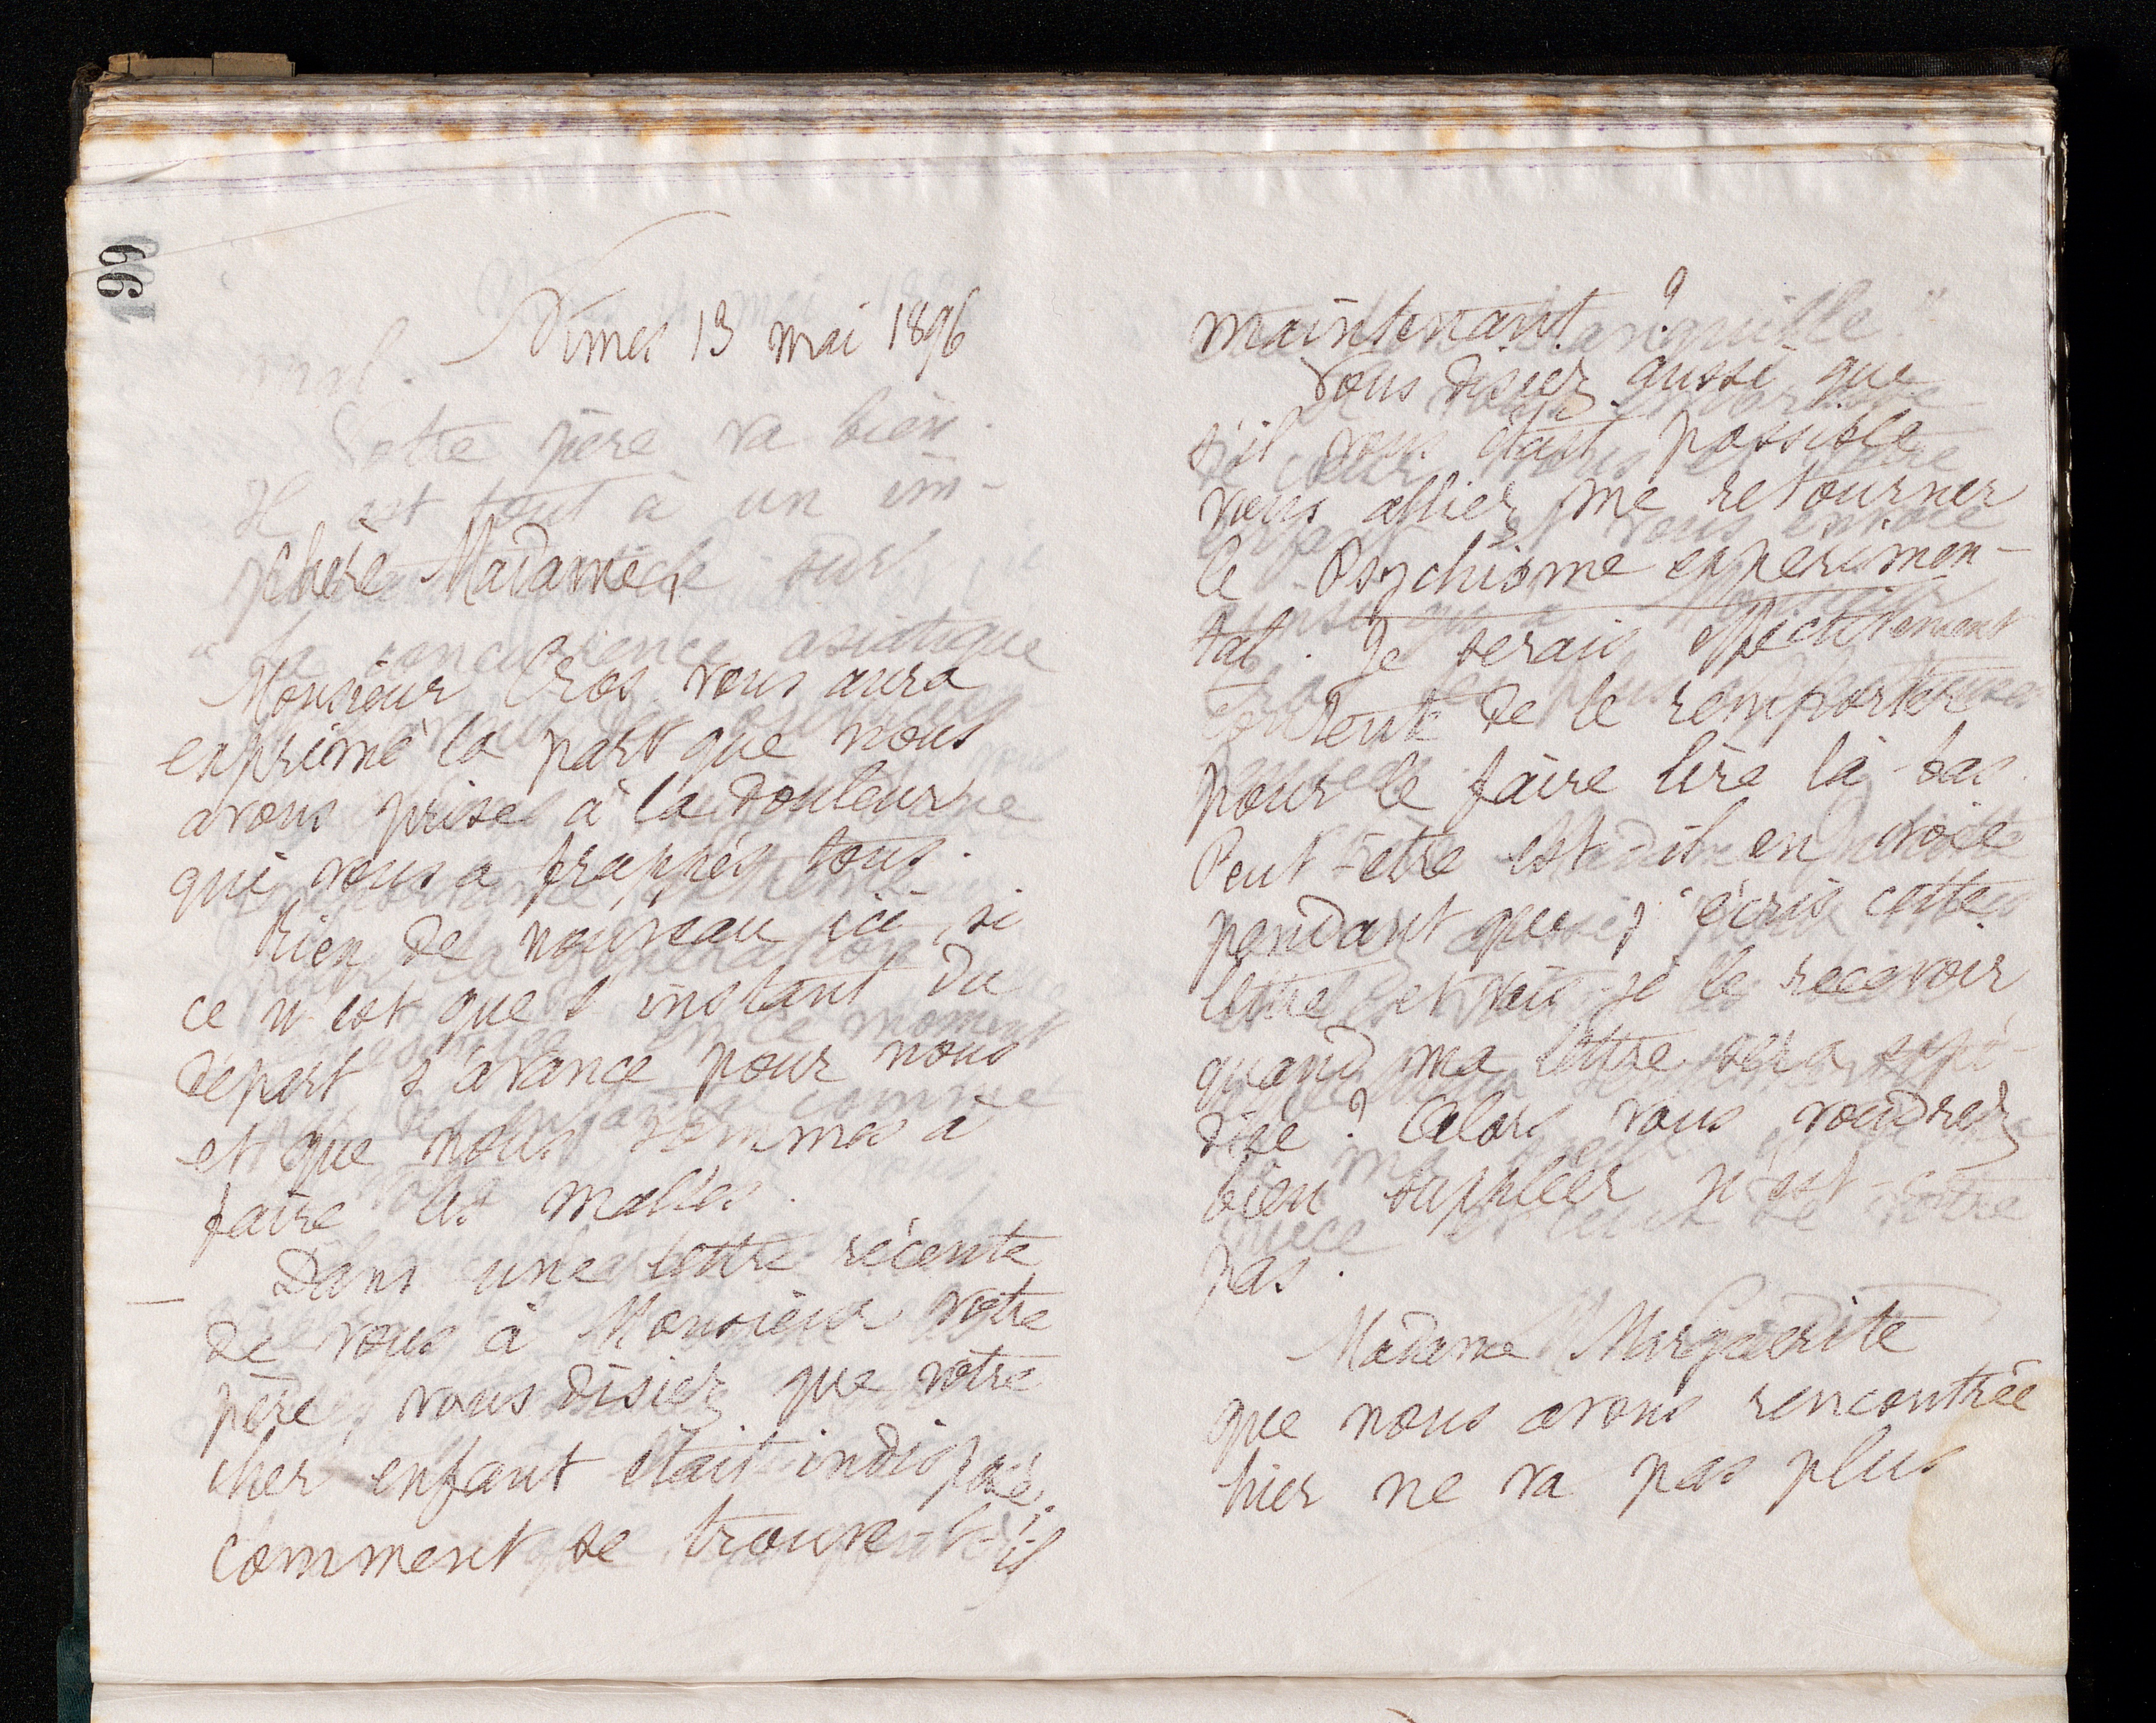 99
Nîmes 13 mai 1896
Chère Madame,
Monsieur Cros vous aura
exprimé la part que nous
avons prise à la douleur
qui vous a frappés tous.
Rien de nouveau ici, si
ce n'est que l'instant du
départ s'avance pour nous
et que nous sommes à
faire les malles.
Dans une lettre récente
de vous à Monsieur votre
père, vous disiez que votre
cher enfant était indisposé;
comment se trouve-t-il
maintenant ?
Vous disiez aussi que
s'il vous était possible
vous alliez me retourner
le Psychisme expérimen-
tal. Je serais effectivement
content de le remporter
pour le faire lire là-bas.
Peut-être est-il en route
pendant que j'écris cette
lettre et vais-je le recevoir
quand ma lettre sera expé-
diée ? Alors vous voudrez
bien suppléer n'est-ce
pas.
Madame Marguerite
que nous avons rencontrée
hier ne va pas plus